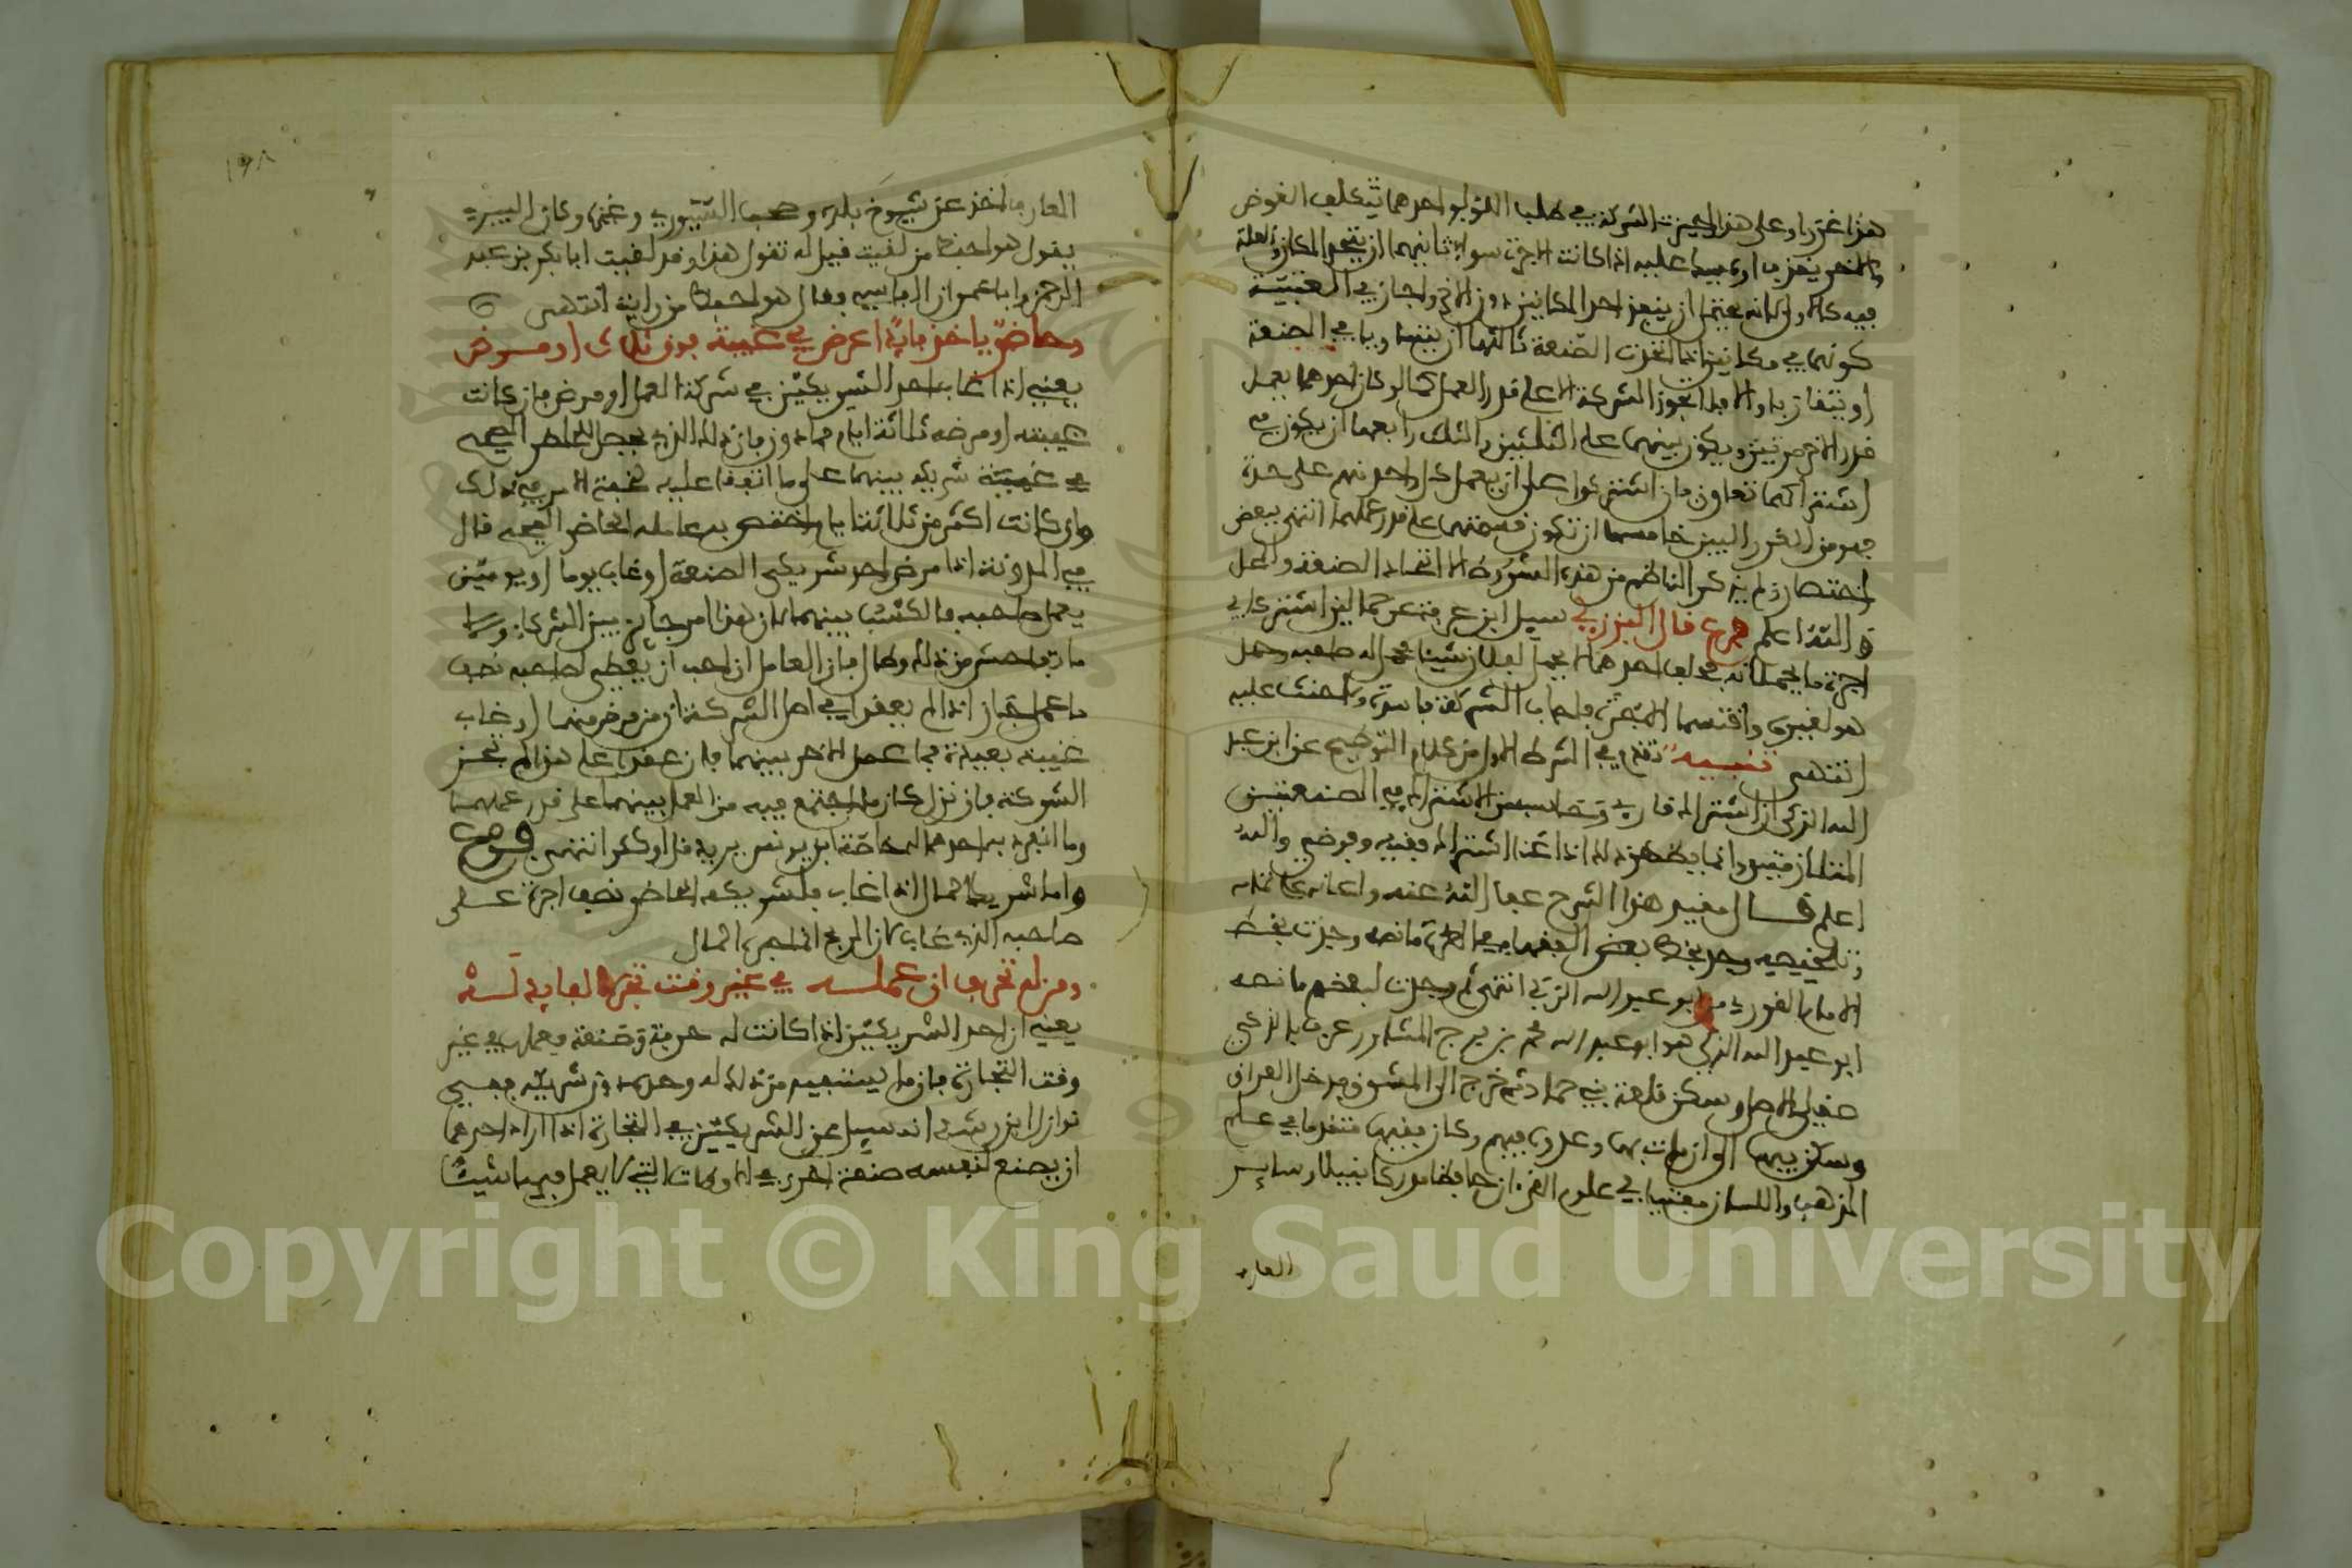 هذا غررا وعلى هذا لم يجز الشركة في طلب اللؤلؤ احدهما يتكلف الغوض
والاخر يقذف او يمسك عليه اذا كانت الاجرة سواء ثانيهما ان يتحد المكان والعلة
فيه كالاول لانه يحتمل ان ينفق احد المكانين دون الاخر واجاز في العتبية
كونهما في مكانين اذا اتخذت الصنعة ثالثها ان يتساويا في الصنعة
او يتقاربا والا فلا تجوز الشركة الا على قدر العمل كما لو كان احدهما يعمل
قدر الاخر مرتين ويكون بينهما على الثلثين والثلث رابعها ان يكون في
اشتراكهما تعاون فان اشتركوا على ان يعمل كل واحد منهم على حدة
فهو من الغرر البين خامسها ان تكون قسمتهم على قدر عملهما انتهى ببعض
اختصار ولم يذكر الناظم من هذه الشروط الا اتحاد الصنعة والمحل
والله اعلم فرع قال البرزلي سيل ابن عرفة عن حمالين اشتركا في
اجرة ما يحملانه فحلف احدهما لا يحمل لفلان شيئا فحمل له صاحبه وحمل
هو لغيره واقتسما الاجرة فاجاب الشركة فاسدة ولا حنث عليه
انتهى تنبيه تقدم في الشرط الاول من كلام التوضيح عن ابن عبد
الله الزكي ان اشتراك قاري وحاسب من الاشتراك في الصنعتين
المتلازمتين وانما يظهر ذلك اذا عند اشتراك فقيه وفرضي والله
اعلم قال مقيد هذا الشرح عفا الله عنه واعانه على اتمامه
وتلخيصه وجد بخط بعض الفقهاء في الطرة ما نصه وجدت بخط
الامام القوري ابو عبد الله الزكي انتهى ثم وجدت لبعضهم ما نصه
ابو عبد الله الزكي هو ابو عبد الله محمد بن فرج المشاور عرف بالزكي
صقلي الاصل وسكن قلعة بني حماد ثم خرج الى المشرق فدخل العراق
وسكن بها الى ان مات بها وعلا وفيهم وكان فقيها متقدما في علم
المذهب واللسان مفتيا في علوم القرءان حافظا مدركا نبيلا وساير
العارف
العارف اخذ عن شيوخ بلده وصحب السيوري وغيره وكان السيوري
يقول هو احفظ من لقيت فقيل له تقول هذا وقد لقيت ابا بكر بن عبد
الرحمن وابا عمران الفاسي فقال هو احفظ من رايت انتهى
وحاضر ياخذ فايدا عرض في غيبة فوق ثلاث او مرض
يعني اذا غاب احد الشريكين في شركة العمل او مرض فان كانت
غيبته او مرضه ثلاثة ايام فما دون فان ذلك الذي يحصل للحاضر الصحيح
في غيبة شريكه بينهما على ما اتفقا عليه لخفة الامر في ذلك
وان كانت اكثر من ثلاثة ايام اختص به عامله الحاضر الصحيح قال
في المدونة اذا مرض احد شريكي الصنعة او غاب يوما او يومين
يعمل صاحبه فالكسب بينهما لان هذا امر جائز بين الشركاء واما
ما تفاحش من ذلك وطال فان العامل ان احب ان يعطي لصاحبه نصف
ما عمل جاز اذا لم يعقدا في اصل الشركة ان من مرض منهما او غاب
غيبة بعيدة فما عمل الاخر بينهما فان عقدا على هذا لم تجز
الشركة فان نزل كان ما اجتمع فيه من العمل بينهما على قدر عملهما
وما انفرد به احدهما له خاصة ابن يونس يريد قل او كثر انتهى فرع
واما شريكا المال اذا غاب فلشريكه الحاضر نصف اجرة على
صاحبه الذي غاب لان الربح انما جره المال
ومن له تحرف ان عمله في غير وقت تجره الفايد له
يعني ان احد الشريكين اذا كانت له حرفة وصنعة وعملها في غير
وقت التجارة فان ما يستفيده من ذلك له وحده دون شريكه ففي
نوازل ابن رشد انه سيل عن الشريكين في التجارة اذا اراد احدهما
ان يصنع لنفسه صنعة اخرى في الاوقات التي لا يعمل فيها شيئا
١٩٨
Copyright © King Saud University